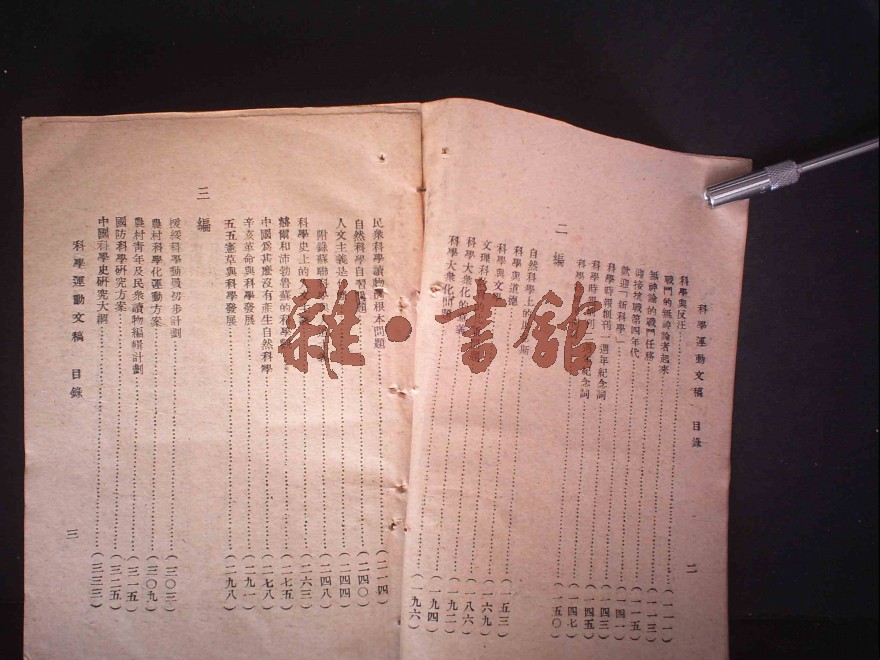 科學運動文稿 目錄 二
科學與反汪……(一一一)
戰鬥的無神論者起來……(一一三)
無神論的戰鬥任務……(一一五)
迎接抗戰第四年代……(一四一)
歡迎「新科學」……(一四三)
科學時報創刊一週年紀念詞……(一四五)
科學時報創刊 紀念詞……(一四七)
科學 ……(一五〇)
二 編
自然科學上的 斯……(一五三)
科學與道德……(一六九)
科學與文……(一八六)
文理科……(一九二)
科學大衆化 義……(一九四)
科學大衆化問題……(一九六)
民衆科學讀物的根本問題……(二一四)
自然科學自習 題……(二四〇)
人文主義是……(二四四)
附錄蘇聯科學……(二四八)
科學史上的……(二六三)
赫爾和沛勃魯蘇的 科學……(二七五)
中國爲甚麼沒有產生自然科學……(二七八)
辛亥革命與科學發展……(二九一)
五五憲草與科學發展……(二九八)
三 編
援綏科學動員初步計劃……(三〇三)
農村科學化運動方案……(三〇九)
農村靑年及民衆讀物編輯計劃……(三一五)
國防科學硏究方案……(三二五)
中國科學史硏究大綱……(三三三)
科學運動文稿 目錄 三
雜·書館